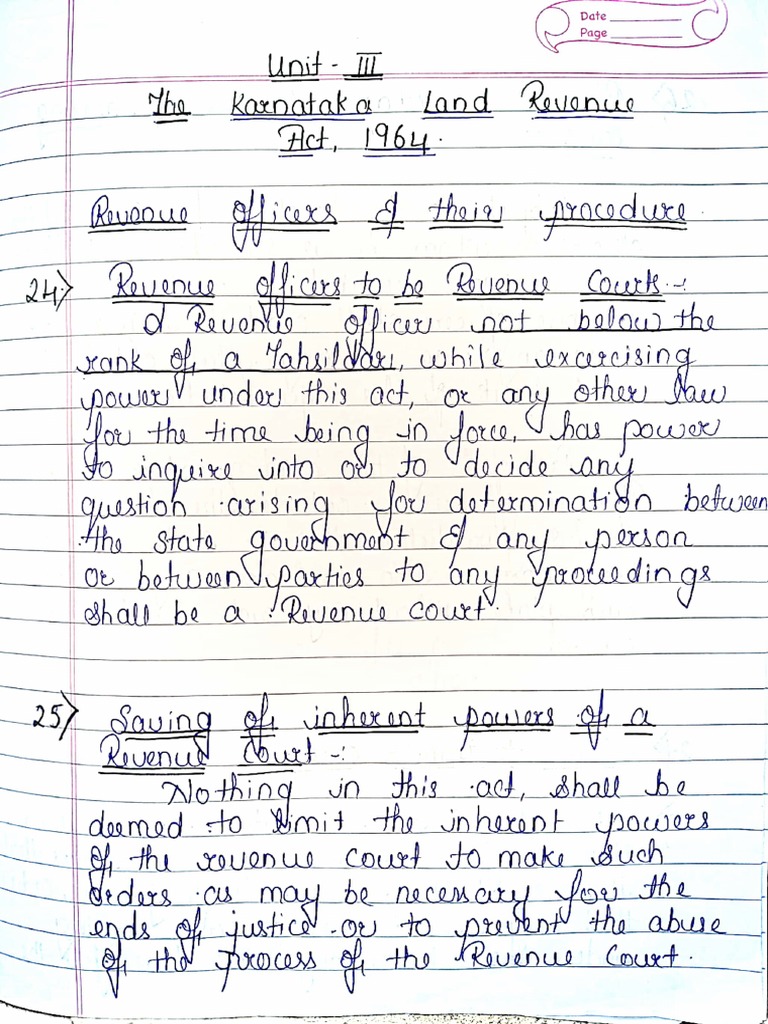 Date
Page
Unit - III
The Karnataka Land Revenue
Act, 1964.
Revenue officers & their procedure
24) Revenue officers to be Revenue Courts -:
A Revenue officer not below the
rank of a Tahsildar, while excercising
power under this act, or any other law
for the time being in force, has power
to inquire into or to decide any
question arising for determination between
the state government & any person
or between parties to any proceedings
shall be a Revenue court.
25) Saving of inherent powers of a
Revenue Court -:
Nothing in this act, shall be
deemed to limit the inherent powers
of the revenue court to make such
orders as may be necessary for the
ends of justice or to prevent the abuse
of the process of the Revenue Court.